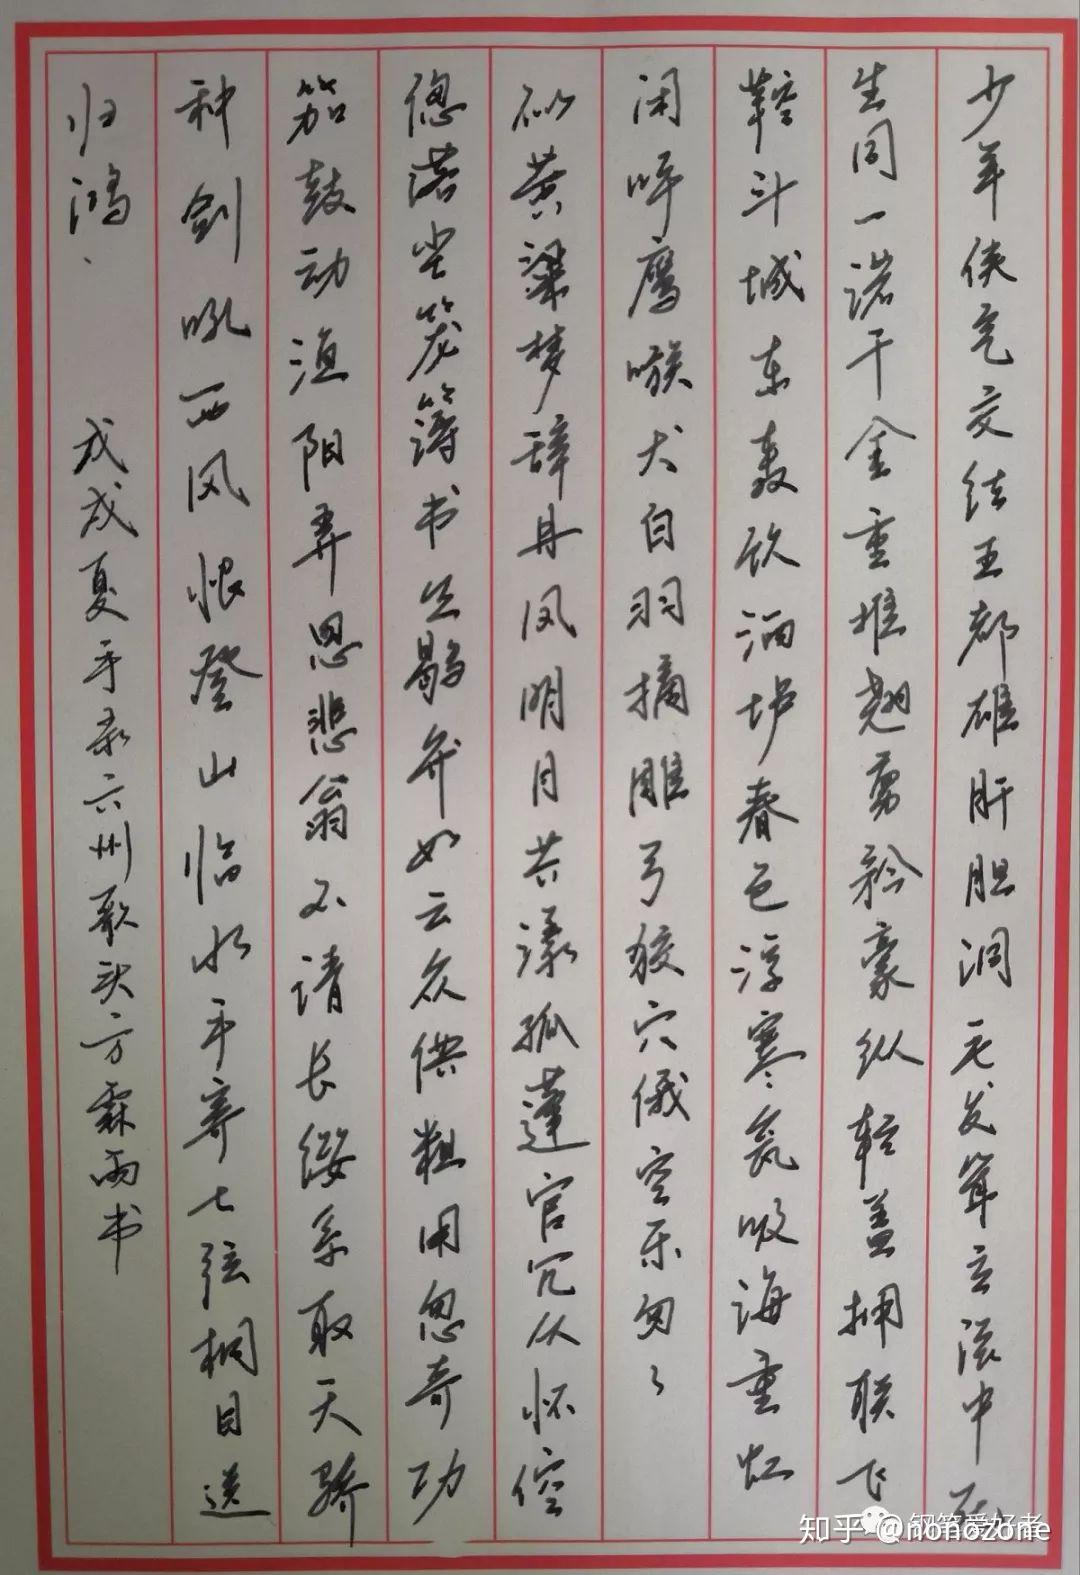 少年侠气交结五都雄肝胆洞毛发耸立谈中死
生同一诺千金重推翘勇矜豪纵轻盖拥联飞
鞚斗城东轰饮酒垆春色浮寒瓮吸海垂虹
闲呼鹰嗾犬白羽摘雕弓狡穴俄空乐匆々
似黄粱梦辞丹凤明月共漾孤蓬官冗从怀倥
偬落尘笼簿书丛鹖弁如云众供粗用忽奇功
笳鼓动渔阳弄思悲翁不请长缨系取天骄
种剑吼西风恨登山临水手寄七弦桐目送
归鸿、 戊戌夏手录六州歌头方霖雨书
钢笔爱好者
知乎 @nonozone